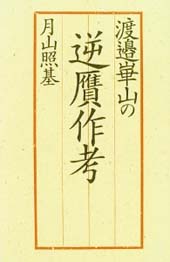 渡邉崋山の
逆贋作考
月山照基